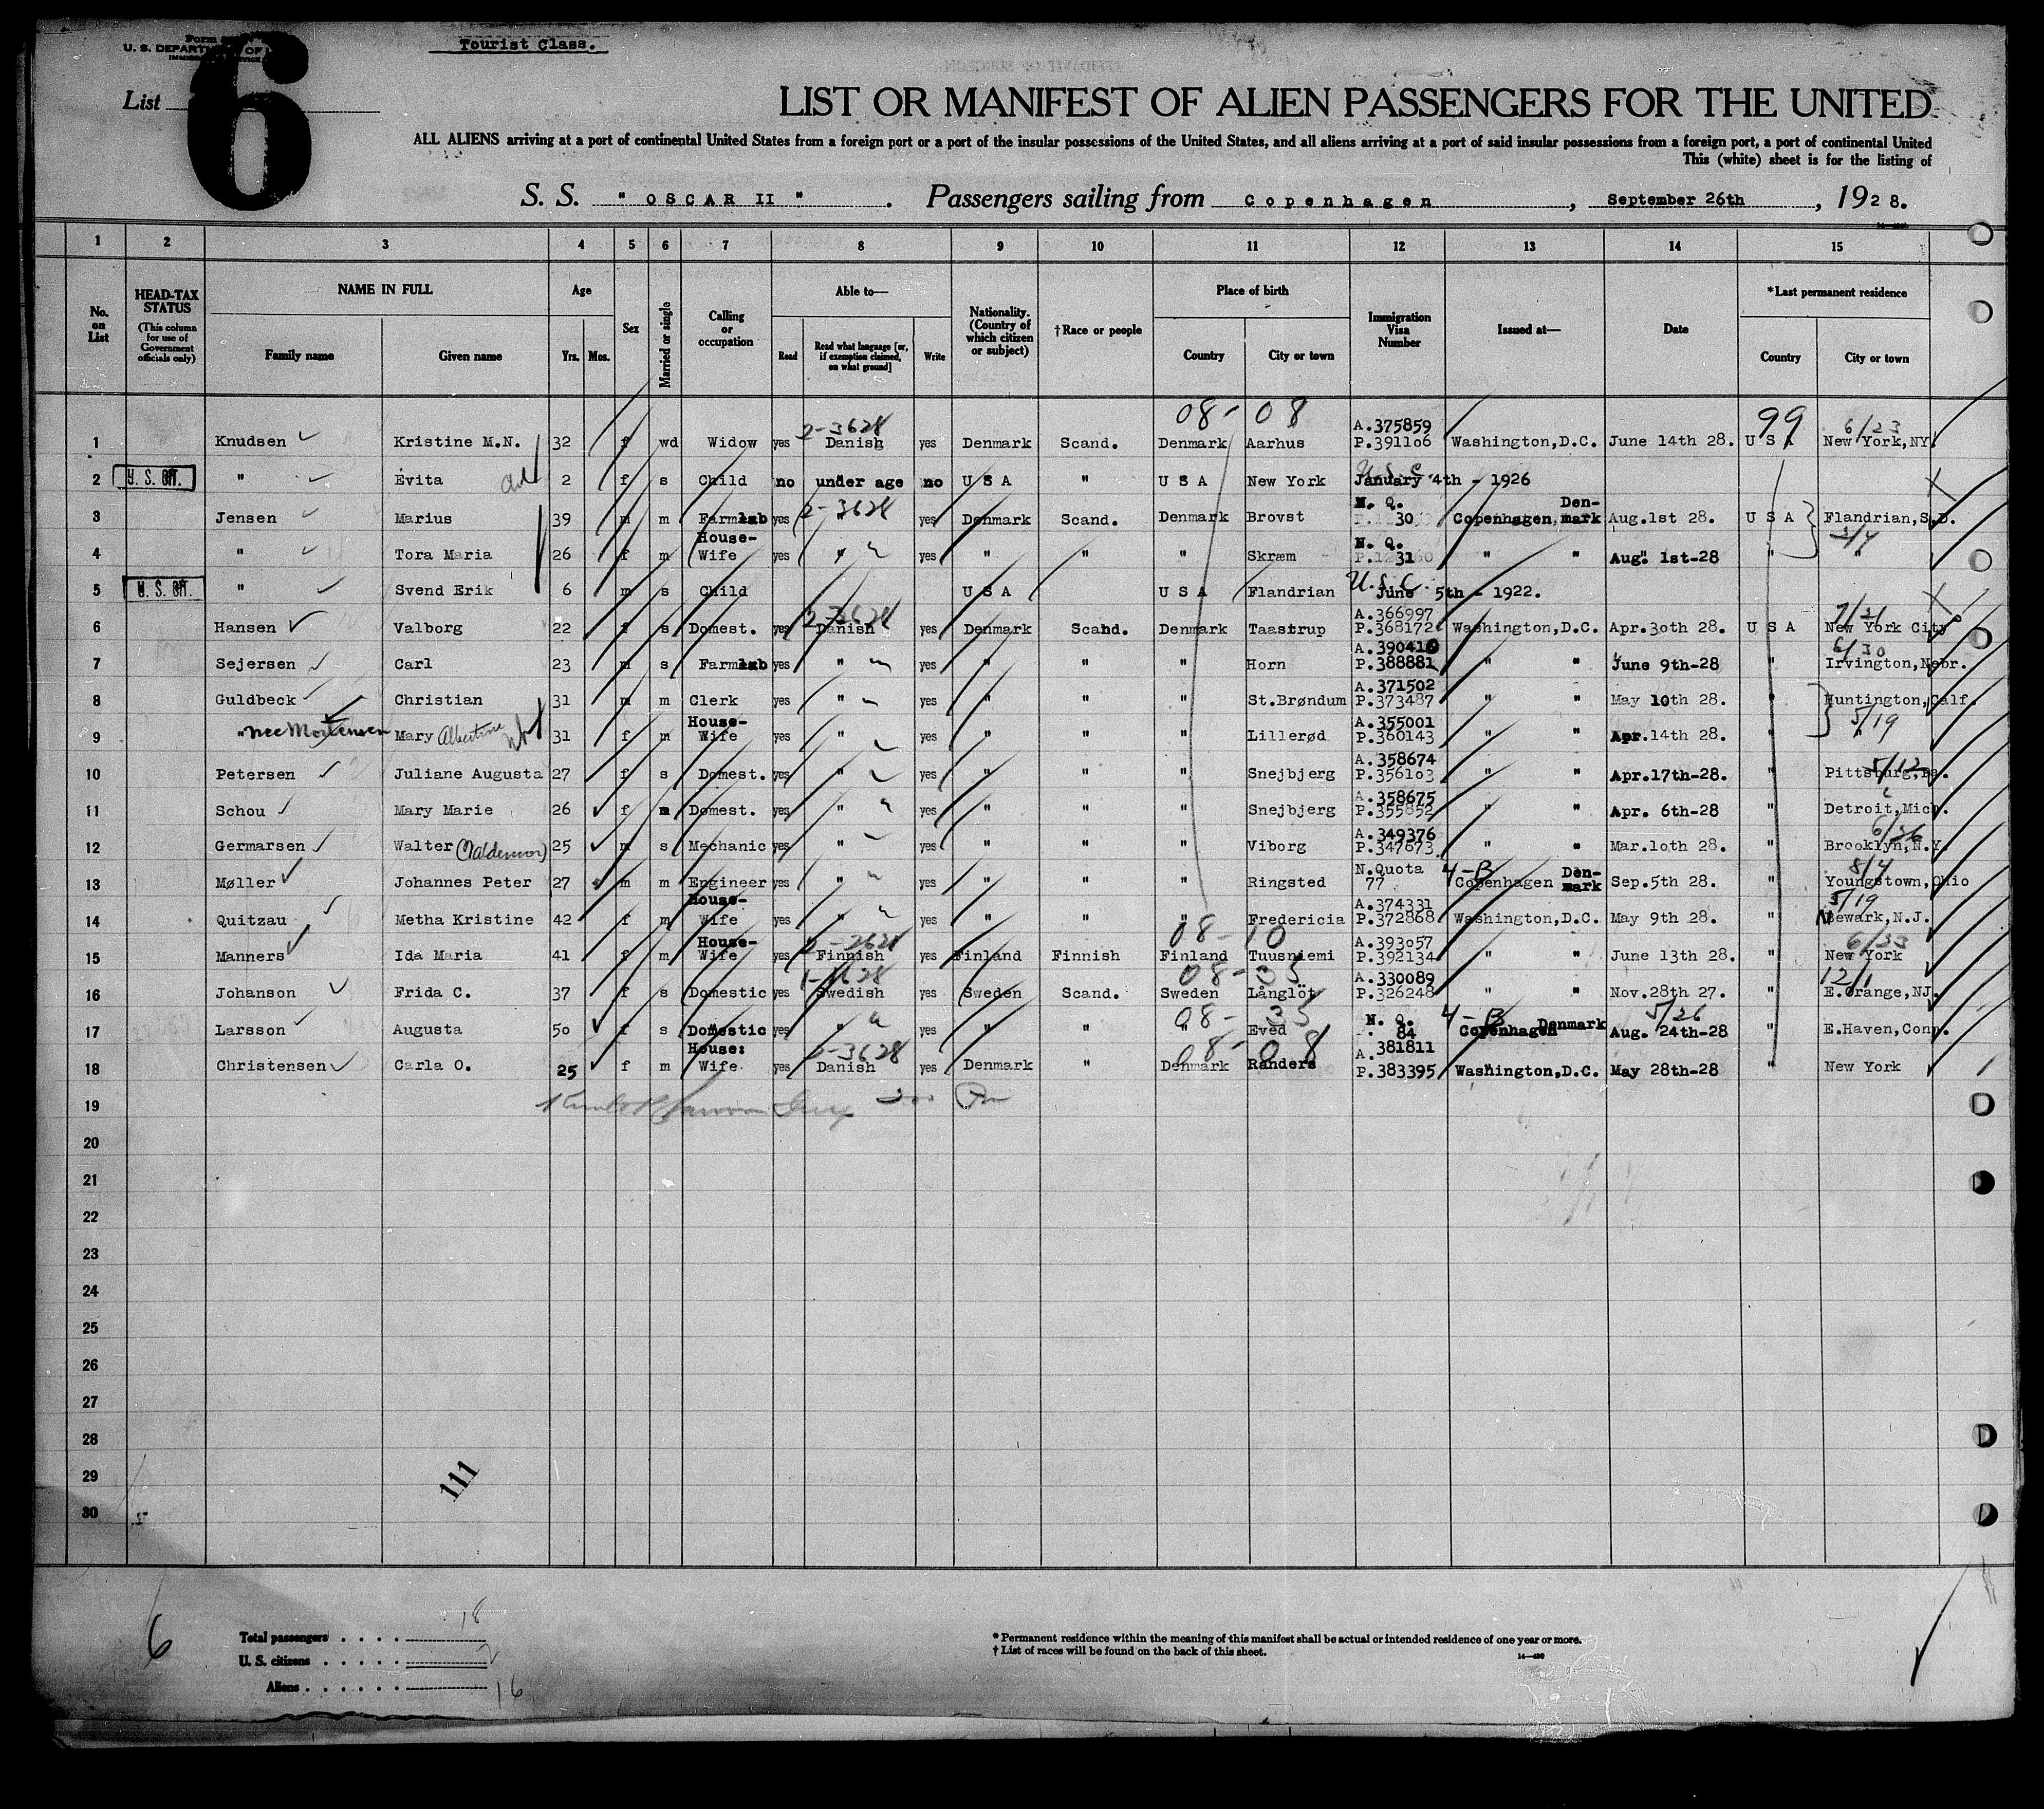 Tourist Class.
U. S. DEPARTMENT OF
List 6
LIST OR MANIFEST OF ALIEN PASSENGERS FOR THE UNITED
ALL ALIENS arriving at a port of continental United States from a foreign port or a port of the insular possessions of the United States, and all aliens arriving at a port of said insular possessions from a foreign port, a port of continental United
This (white) sheet is for the listing of
S. S. " OSCAR II " . Passengers sailing from Copenhagen , September 26th , 1928.
1 2 3 4 5 6 7 8 9 10 11 12 13 14 15
No. on List HEAD-TAX STATUS (This column for use of Government officials only) NAME IN FULL Family name Given name Age Yrs. Mos. Sex Married or single Calling or occupation Able to— Read Read what language [or, if exemption claimed, on what ground] Write Nationality. (Country of which citizen or subject) †Race or people Place of birth Country City or town Immigration Visa Number Issued at— Date *Last permanent residence Country City or town
08- 08 99 6/23
2-3628 A.375859
1 Knudsen Kristine M.N. 32 f wd Widow yes Danish yes Denmark Scand. Denmark Aarhus P.391106 Washington,D.C. June 14th 28. U S A New York,NY.
U.S.C.
2 U. S. CIT. " Evita 2 f s Child no under age no U S A " U S A New York January 4th - 1926
2-3628 N. Q. Den-
3 Jensen Marius 39 m m Farmlab yes " yes Denmark Scand. Denmark Brovst 30 Copenhagen, mark Aug.1st 28. U S A Flandrian,S.D.
House- N. Q. 3/4
4 " Tora Maria 26 f m Wife yes " yes " " " Skræm 31 " " Aug. 1st-28 " "
U.S.C.
5 U. S. CIT. " Svend Erik 6 m s Child U S A U S A Flandrian June 5th - 1922.
2-3628 A.366997 7/26
6 Hansen Valborg 22 f s Domest. yes Danish yes Denmark Scand. Denmark Taastrup P.368172 Washington,D.C. Apr.30th 28. U S A New York City
A.390410 6/30
7 Sejersen Carl 23 m s Farmlab yes " yes " " " Horn P.388881 " " June 9th-28 " Irvington,Nebr.
A.371502
8 Guldbeck Christian 31 m m Clerk yes " yes " " " St.Brøndum P.373487 " " May 10th 28. " Huntington,Calf.
House- A.355001 5/19
9 " nee Mortensen Mary Albertine 31 f m Wife yes " yes " " " Lillerød P.360143 " " Apr.14th 28. " "
A.358674 5/12
10 Petersen Juliane Augusta 27 f s Domest. yes " yes " " " Snejbjerg P.356103 " " Apr.17th-28. " Pittsburg,Pa.
A.358675
11 Schou Mary Marie 26 f m Domest. yes " yes " " " Snejbjerg P.355852 " " Apr. 6th-28 " Detroit,Mich.
A.349376 6/26
12 Germarsen Walter (Valdemor) 25 m s Mechanic yes " yes " " " Viborg P.347673 " " Mar.10th 28. " Brooklyn,N.Y.
N.Quota 4-B Den- 8/4
13 Møller Johannes Peter 27 m m Engineer yes " yes " " " Ringsted 77 Copenhagen mark Sep.5th 28. " Youngstown,Ohio
House- A.374331 5/19
14 Quitzau Metha Kristine 42 f m Wife yes " yes " " " Fredericia P.372868 Washington,D.C. May 9th 28. " Newark,N.J.
House- 2-3628 08-10 A.393057 6/33
15 Manners Ida Maria 41 f m Wife yes Finnish yes Finland Finnish Finland Tuusniemi P.392134 " " June 13th 28. " New York
1-3628 08-35 A.330089 12/1
16 Johanson Frida C. 37 f s Domestic yes Swedish yes Sweden Scand. Sweden Långlöt P.326248 " " Nov.28th 27. " E.Orange,NJ.
08-35 N. Q. 4-B 5/26
17 Larsson Augusta 50 f s Domestic yes " yes " " " Eved 84 Copenhagen Denmark Aug. 24th-28 " E.Haven,Conn.
House: 2-3628 08-08 A.381811
18 Christensen Carla O. 25 f m Wife yes Danish yes Denmark " Denmark Randers P.383395 Washington,D.C. May 28th-28 " New York
19
20
21
22
23
24
25
26
27
28
29
30
111
6
Total passengers . . . . 18
U. S. citizens . . . . . 2
Aliens . . . . . . 16
* Permanent residence within the meaning of this manifest shall be actual or intended residence of one year or more.
† List of races will be found on the back of this sheet.